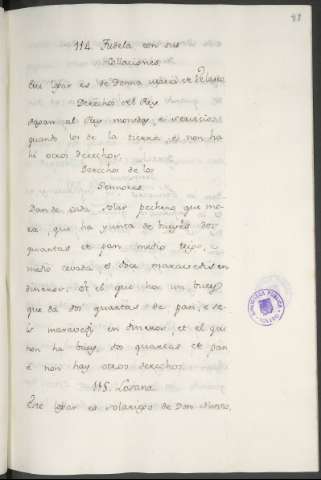 114. Tudela con sus
Collaciones.
Este logar es de Donna
Derechos del Rey
Pagan al Rey monedas e servicios
quando los de la tierra, e non ha
hi otros derechos.
Derechos de los
Sennores
Dan de cada solar pechero que mo-
ra, que ha yunta de bueyes dos
quartas de pan medio trigo, e
medio cevada e doce maravedis en
dineros, et el que ha un buey
que dá dos quartas de pan, e se-
is maravedis en dineros et el que
non ha buey, dos quartas de pan
é non hay otros derechos.
115. Lavana
Este logar es solariego de Don Nunno,